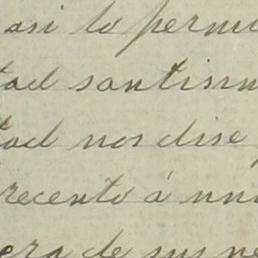 asi lo permi
tad santisim
tad nos dise
recento á un
era de sus pe